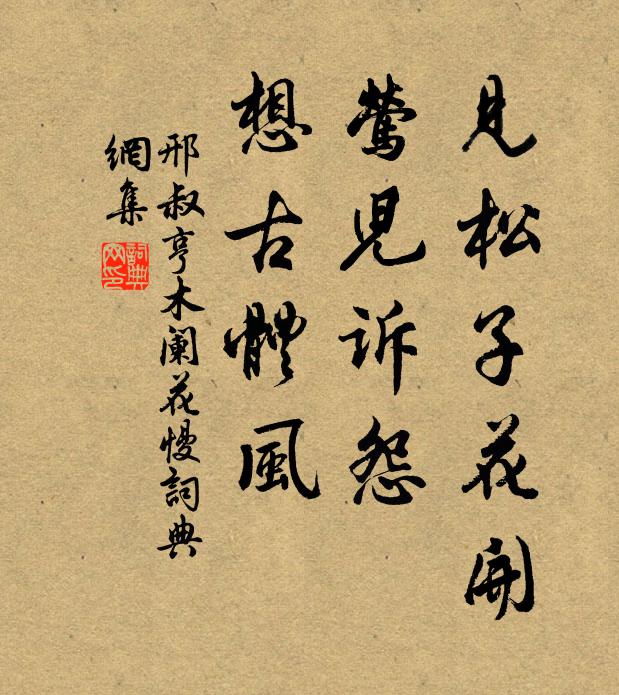 見松子花開
鶯兒訴怨
想古體風
邢叔亨木阑花慢詞典
網集
詞典
网印